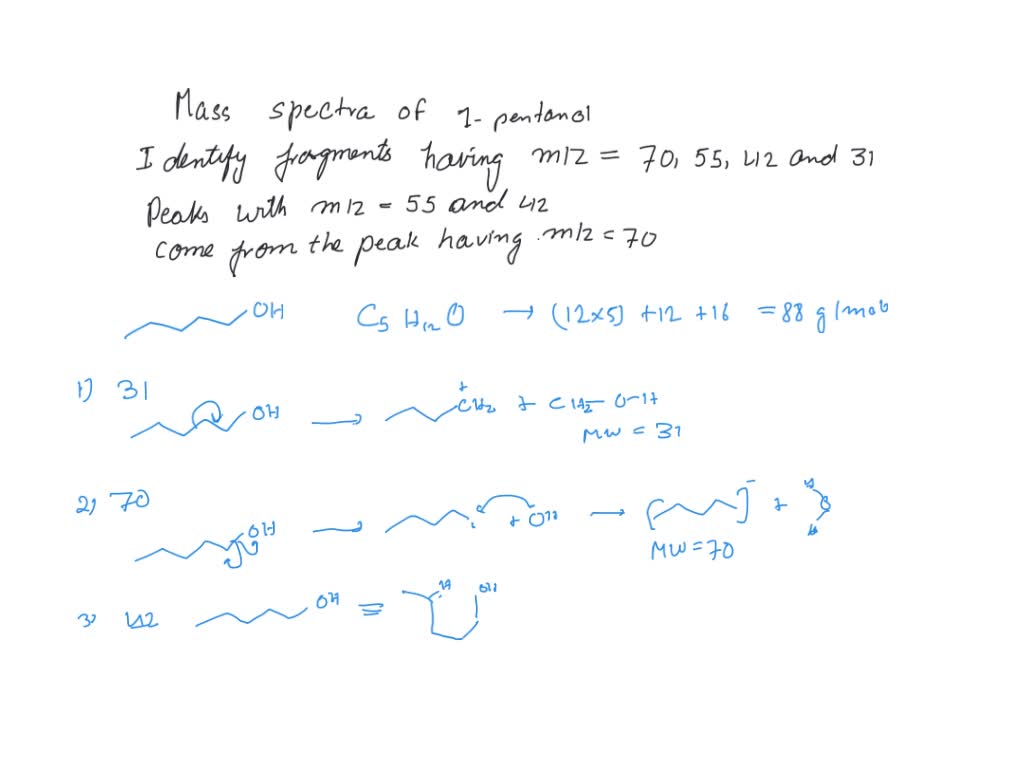 Mass spectra of 1-pentanol
Identify fragments having m/z = 70, 55, 42 and 31
Peaks with m/z = 55 and 42
come from the peak having m/z = 70
OH C5 H12 O → (12×5) +12 +16 = 88 g/mol
1) 31
OH → +CH2 + CH2-O-H
MW = 31
2) 70
OH → . + OH → [ ]- +
MW = 70
3) 42 OH ≡ H OH